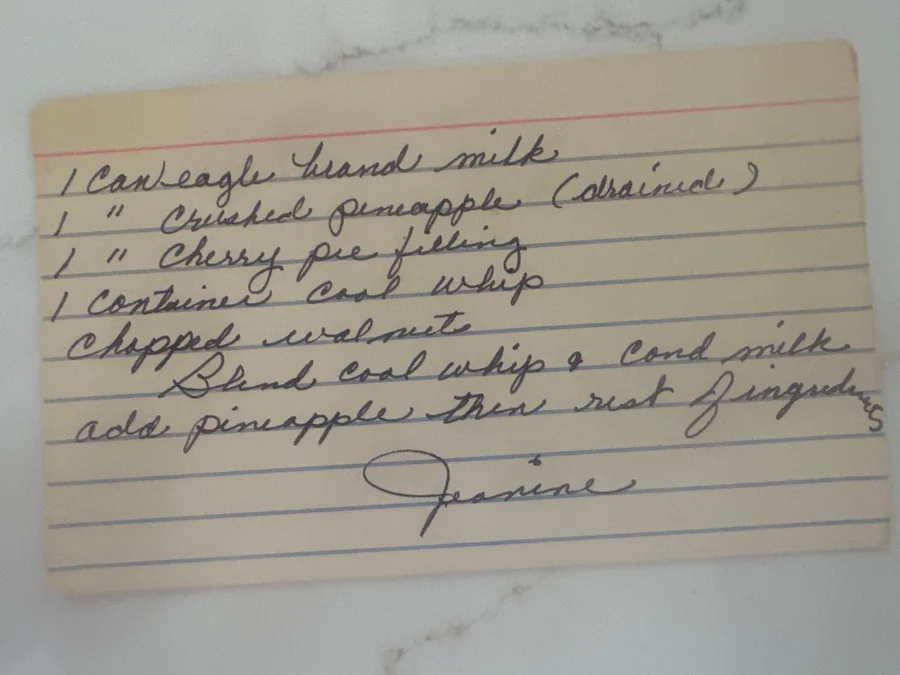 1 Can eagle brand milk
1 " Crushed pineapple (drained)
1 " Cherry pie filling
1 Container cool whip
Chopped walnuts
Blend cool whip & cond milk
add pineapple then rest of ingredients
Jeanine